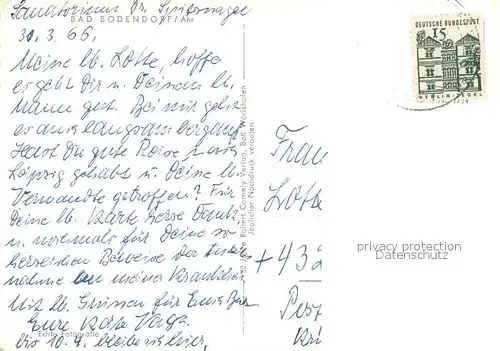 Sanatorium Dr. Spitznagel
BAD BODENDORF/Ahr
30.3.66.
Meine lb. Lotte, hoffe
es geht Dir u. Deinem lb.
Mann gut. Bei mir geht
es auch langsam bergauf.
Hast Du gute Reise nach
Leipzig gehabt u. Deine lb.
Verwandte getroffen? Für
Deine lb. Karte herzl. Dank,
u. nochmals für Deine so
herzlichen Beweise der
nahme an meiner Krankheit
Mit lb. Grüssen für Euch
Eure Käthe
bis 10.4. bleibe ich hier.
Echte Fotografie
Robert Cornely Verlag, Bad Wörishofen
Jeglicher Nachdruck verboten
DEUTSCHE BUNDESPOST
15
BERLIN-TEGEL
Frau
Lotte
+ 432
privacy protection
Datenschutz